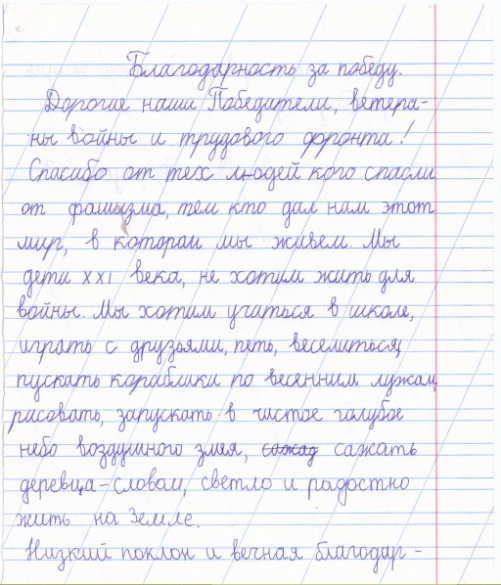 Благодарность за победу.
Дорогие наши Победители, ветера-
ны войны и трудового фронта!
Спасибо от тех людей кого спасли
от фашизма, тем кто дал нам этот
мир, в котором мы живем. Мы
дети XXI века, не хотим жить для
войны. Мы хотим учиться в школе,
играть с друзьями, петь, веселиться,
пускать кораблики по весенним лужам,
рисовать, запускать в чистое голубое
небо воздушного змея, сажад сажать
деревца-словом, светло и радостно
жить на Земле.
Низкий поклон и вечная благодар-